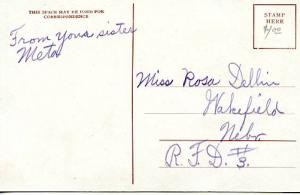 THIS SPACE MAY BE USED FOR
CORRESPONDENCE
STAMP
HERE
$1.00
From your sister
Meta
Miss Rosa Dellin
Wakefield
Nebr
R.F.D. #3.